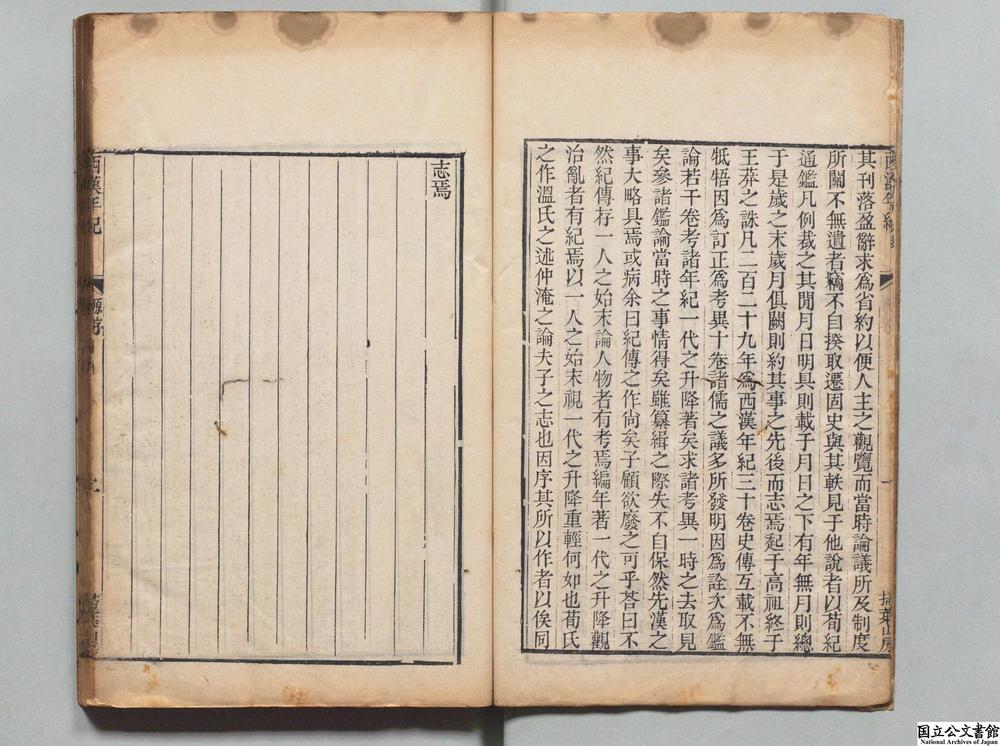 其刊落盈辭求為省約以便人主之觀覽而當時論議所及制度
所關不無遺者竊不自揆取遷固史與其軼見于他說者以荀紀
通鑑凡例裁之其閒月日明具則載于月日之下有年無月則總
于是歲之末歲月俱闕則約其事之先後而志焉起于高祖終于
王莽之誅凡二百二十九年為西漢年紀三十卷史傳互載不無
牴牾因為訂正為考異十卷諸儒之議多所發明因為詮次為鑑
論若干卷考諸年紀一代之升降著矣求諸考異一時之去取見
矣參諸鑑論當時之事情得矣雖纂緝之際失不自保然先漢之
事大略具焉或病余曰紀傳之作尚矣子顧欲廢之可乎荅曰不
然紀傳存一人之始末論人物者有考焉編年著一代之升降觀
治亂者有紀焉以一人之始末視一代之升降重輕何如也荀氏
之作溫氏之述仲淹之論夫子之志也因序其所以作者以俟同
志焉
西漢年紀
原序
掃葉山房
国立公文書館
National Archives of Japan